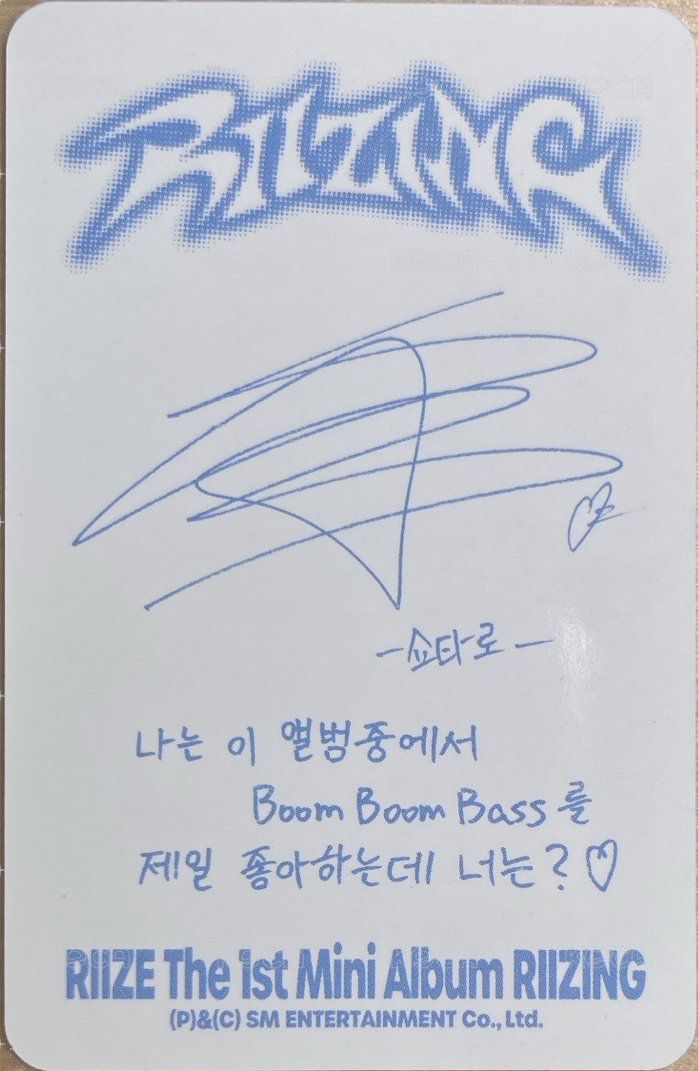 RIIZING
-쇼타로-
나는 이 앨범중에서
Boom Boom Bass를
제일 좋아하는데 너는?♡
RIIZE The 1st Mini Album RIIZING
(P)&(C) SM ENTERTAINMENT Co., Ltd.